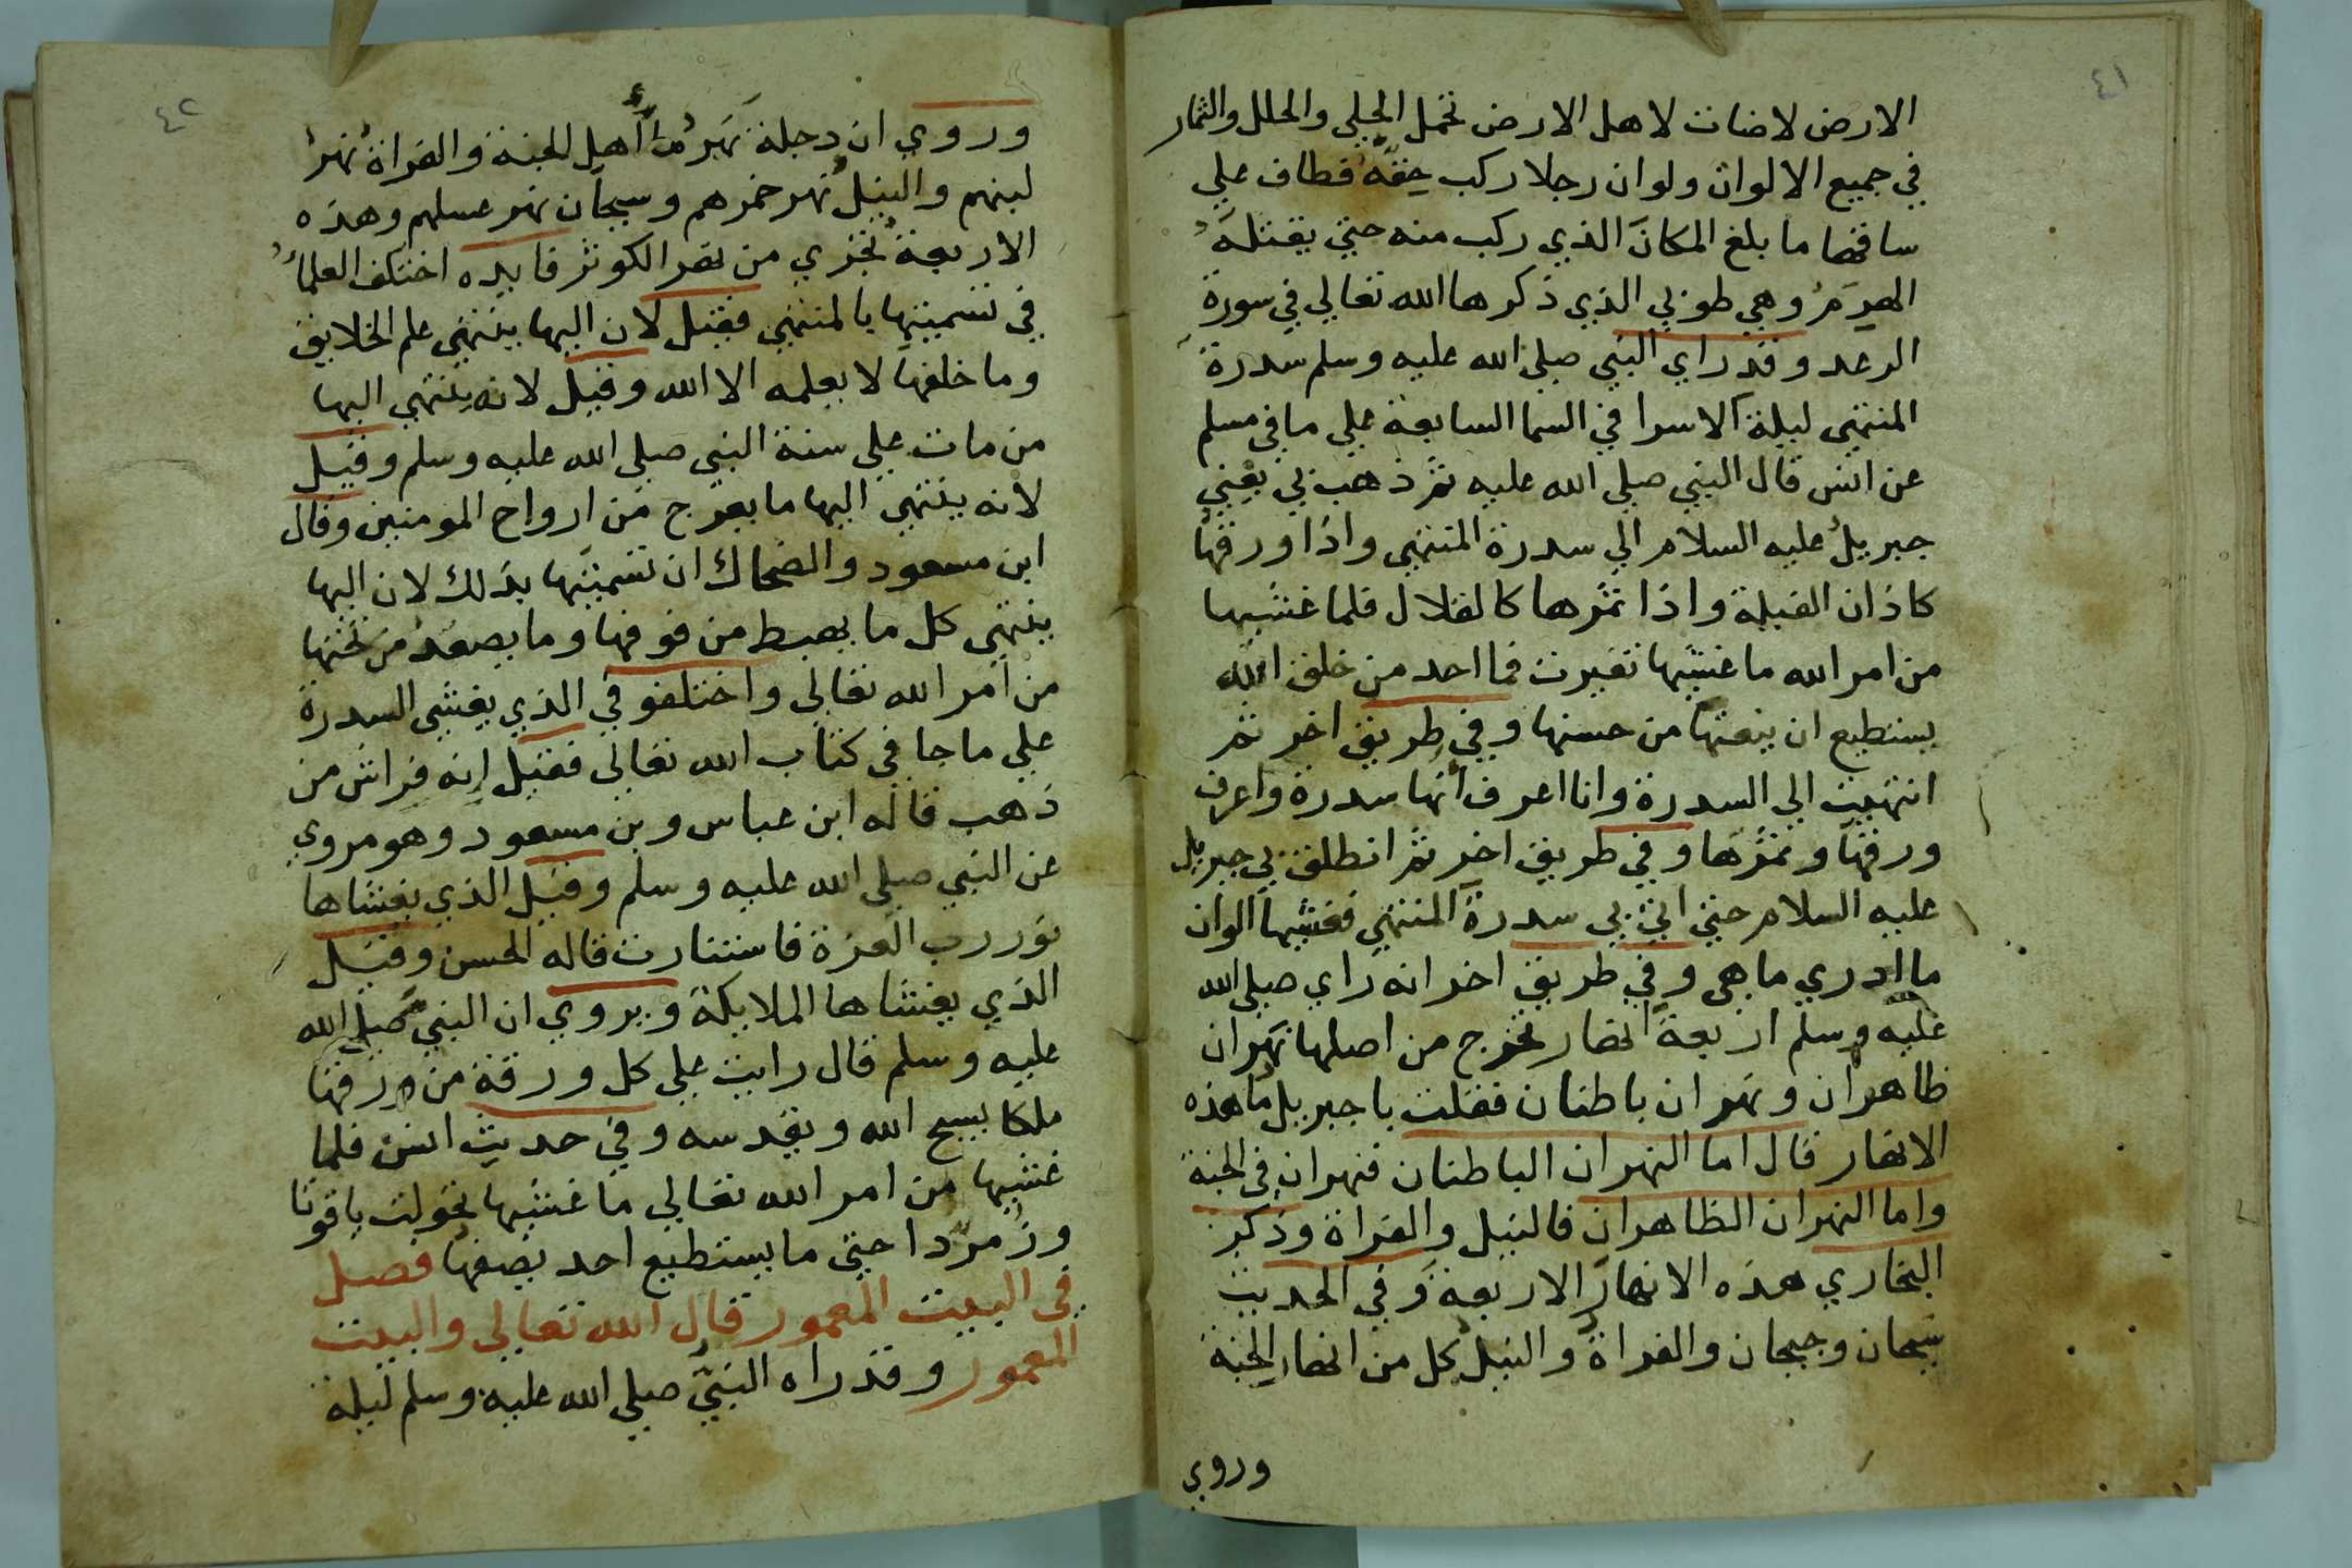 ٤١
الارض لاضات لاهل الارض تحمل الحلي والحلل والثمار
في جميع الالوان ولو ان رجلا ركب حقه فطاف علي
ساقها ما بلغ المكان الذي ركب منه حتي يقتله
الهرم وهي طوبي الذي ذكرها الله تعالي في سورة
الرعد وقد راي النبي صلي الله عليه وسلم سدرة
المنتهي ليلة الاسرا في السما السابعة علي ما في مسلم
عن انس قال النبي صلي الله عليه ثم ذهب بي يعني
جبريل عليه السلام الي سدرة المنتهي واذا ورقها
كاذان الفيلة واذا ثمرها كالقلال فلما غشيها
من امر الله ما غشيها تغيرت فما احد من خلق الله
يستطيع ان ينعتها من حسنها وفي طريق اخر ثم
انتهيت الي السدرة وانا اعرف انها سدرة واعرف
ورقها وثمرها وفي طريق اخر ثم انطلق بي جبريل
عليه السلام حتي اتي بي سدرة المنتهي فغشيها الوان
ما ادري ما هي وفي طريق اخر انه راي صلي الله
عليه وسلم اربعة انهار تخرج من اصلها نهران
ظاهران ونهران باطنان فقلت يا جبريل ما هذه
الانهار قال اما النهران الباطنان فنهران في الجنة
واما النهران الظاهران فالنيل والفراة وذكر
البخاري هذه الانهار الاربعة وفي الحديث
سيحان وجيحان والفراة والنيل كل من انهار الجنة
وروي
٤٢
وروي ان دجلة نهر ماء اهل الجنة والفراة نهر
لبنهم والنيل نهر خمرهم وسيحان نهر عسلهم وهذه
الاربعة تجري من نهر الكوثر فايده اختلف العلماء
في تسميتها بالمنتهي فقيل لان اليها ينتهي علم الخلايق
وما خلفها لا يعلمه الا الله وقيل لانه ينتهي اليها
من مات علي سنة النبي صلي الله عليه وسلم وقيل
لانه ينتهي اليها ما يعرج من ارواح المومنين وقال
ابن مسعود والضحاك ان تسميتها بذلك لان اليها
ينتهي كل ما يهبط من فوقها وما يصعد من تحتها
من امر الله تعالي واختلفو في الذي يغشي السدرة
علي ما جا في كتاب الله تعالي فقيل انه فراش من
ذهب قاله ابن عباس وبن مسعود وهو مروي
عن النبي صلي الله عليه وسلم وقيل الذي يغشاها
نور رب العزة فاستنارت قاله الحسن وقيل
الذي يغشاها الملايكة ويروي ان النبي صلي الله
عليه وسلم قال رايت علي كل ورقة من ورقها
ملكا يسبح الله ويقدسه وفي حديث انس فلما
غشيها من امر الله تعالي ما غشيها تحولت ياقوتا
وزمردا حتي ما يستطيع احد يصفها فصل
في البيت المعمور قال الله تعالي والبيت
المعمور وقد راه النبي صلي الله عليه وسلم ليلة